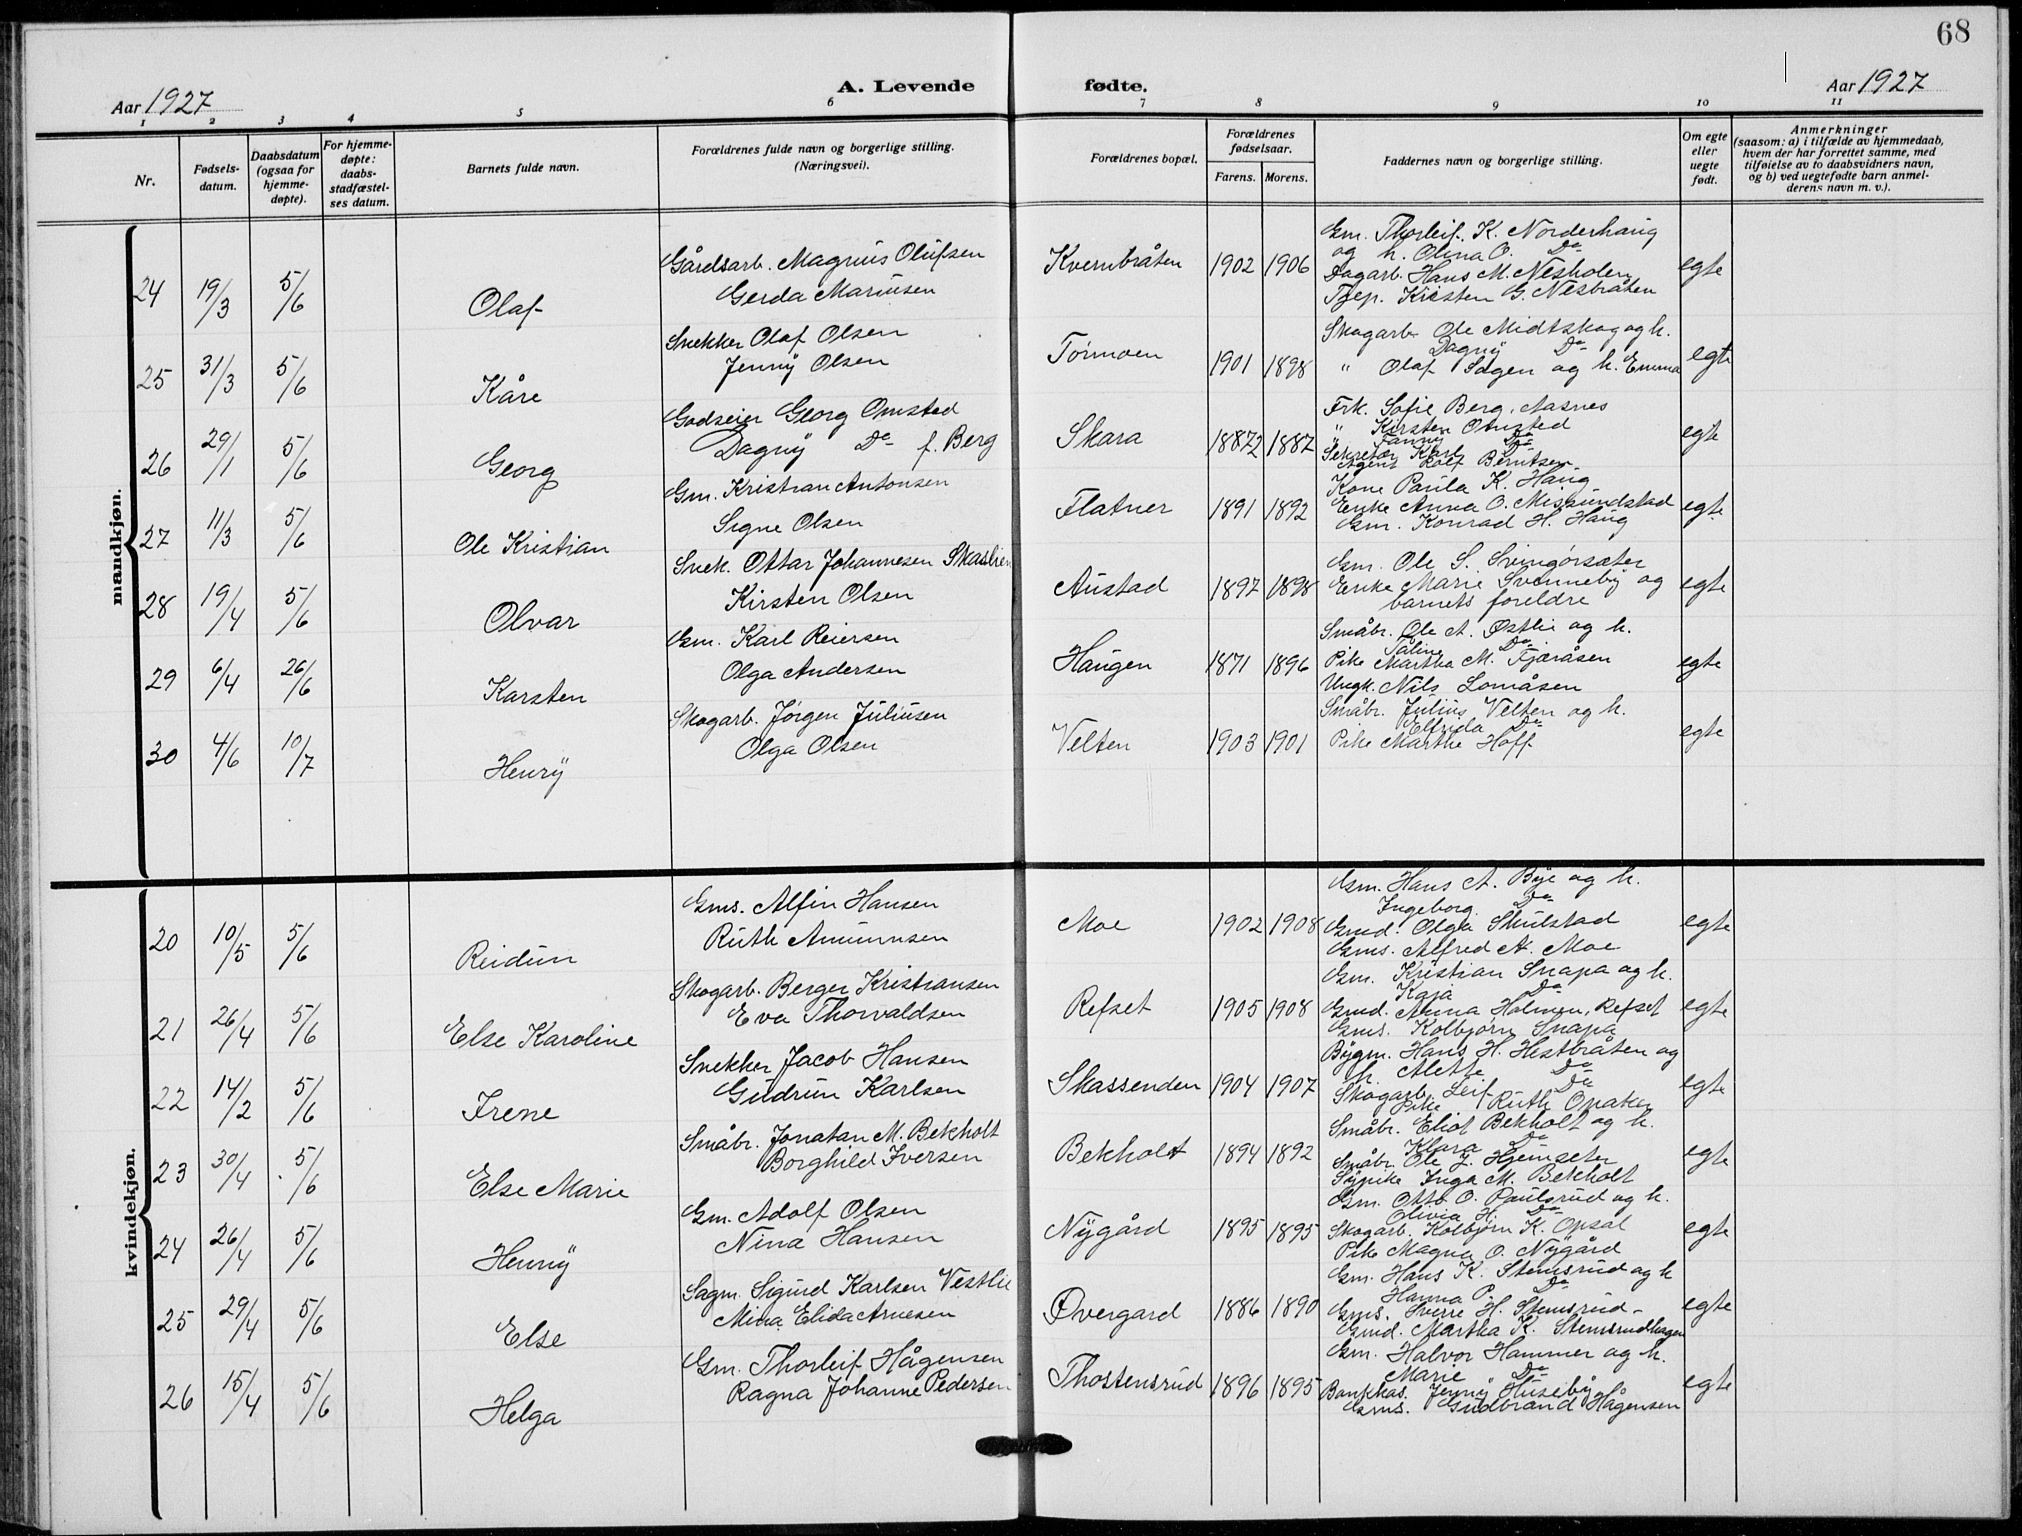 68
Aar 1927 A. Levende fødte. Aar 1927
1 2 3 4 5 6 7 8 9 10 11
Nr.
Fødsels-
datum.
Daabsdatum
(ogsaa for
hjemme-
døpte).
For hjemme-
døpte:
daabs-
stadfæstel-
ses datum.
Barnets fulde navn.
Forældrenes fulde navn og borgerlige stilling.
(Næringsvei).
Forældrenes bopæl.
Forældrenes
fødselsaar.
Farens. Morens.
Faddernes navn og borgerlige stilling.
Om egte
eller
uegte
født.
Anmerkninger
(saasom: a) i tilfælde av hjemmedaab,
hvem der har forrettet samme, med
tilføielse av to daabsvidners navn,
og b) ved uegtefødte barn anmel-
derens navn m. v.).
mandkjøn.
24 19/3 5/6 Olaf
Gårdsarb. Magnus Olufsen
Gerda Mariusen
Kvernbråten 1902 1906
Gm. Thorleif K. Norderhaug
og h. Olina O. Do
Dagarb. Hans M. Nesholen
Tjep. Kirsten G. Nesbråten
egte
25 31/3 5/6 Kåre
Snekker Olaf Olsen
Jenny Olsen
Tørmoen 1901 1898
Skogarb Ole Midtskog og h.
Dagny Do
" Olaf Sagen og h. Emma
egte
26 29/1 5/6 Georg
Godseier Georg Omsted
Dagny Do f. Berg
Skara 18872 1887
Frk. Sofie Berg, Aasnes
" Kirsten Omsted
" Fanny Do
Sekretær Karl Do
Agent Rolf Berntsen
egte
27 11/3 5/6 Ole Kristian
Gm. Kristian Antonsen
Signe Olsen
Flatner 1891 1892
Kone Paula K. Haug
Enke Anna O. Missundstad
Gm. Konrad H. Haug
egte
28 19/4 5/6 Olvar
Snek. Ottar Johannesen Skaslien
Kirsten Olsen
Austad 1897 1898
Gm. Ole S. Svingørsæter
Enke Marie Svenneby og
barnets foreldre
egte
29 6/4 26/6 Karsten
Gm. Karl Reiersen
Olga Andersen
Haugen 1871 1896
Småbr. Ole A. Østlie og h.
Taline Do
Pike Martha M. Fjæråsen
Ungk. Nils Lomåsen
egte
30 4/6 10/7 Henry
Skogarb. Jørgen Juliusen
Olga Olsen
Velten 1903 1901
Småbr. Julius Velten og h.
Elfrida Do
Pike Marthe Hoff
egte
kvindekjøn.
20 10/5 5/6 Reidun
Gms. Alfin Hansen
Ruth Amunnsen
Moe 1902 1908
Gm. Hans A. Bye og h.
Ingeborg Do
Gmd. Olga Skulstad
Gms. Alfred A. Moe
egte
21 26/4 5/6 Else Karoline
Skogarb. Berger Kristiansen
Eva Thorvaldsen
Refset 1905 1908
Gm. Kristian Snapa og h.
Kaja Do
Gmd. Anna Holmen, Refset
Gms. Kolbjørn Snapa
egte
22 14/2 5/6 Irene
Snekker Jacob Hansen
Gudrun Karlsen
Skassenden 1904 1907
Bygm. Hans H. Hestbråten og
h. Alette Do
Skogarb. Leif Do
Pike Ruth Opaker
egte
23 30/4 5/6 Else Marie
Småbr. Jonatan M. Bekholt
Borghild Iversen
Bekholt 1894 1892
Småbr. Eliot Bekholt og h.
Klara Do
Småbr. Ole J. Hjemseter
Sypike Inga M. Bekholt
egte
24 26/4 5/6 Henny
Gm. Adolf Olsen
Nina Hansen
Nygård 1895 1895
Gm. Otto O. Paulsrud og h.
Olivia H. Do
Skogarb. Kolbjørn K. Opsal
Pike Magna O. Nygård
egte
25 29/4 5/6 Else
Sagm. Sigurd Karlsen Vestlie
Mina Elida Arnesen
Øvergard 1886 1890
Gm. Hans K. Stemsrud og h
Hanna P. Do
Gms. Sverre H. Stemsrud
Gmd. Martha K. Stemsrudhagen
egte
26 15/4 5/6 Helga
Gm. Thorleif Hågensen
Ragna Johanne Pedersen
Thostensrud 1896 1895
Gm. Halvor Hammer og h.
Marie Do
Bankkas. Jenny Huseby
Gms. Gudbrand Hågensen
egte